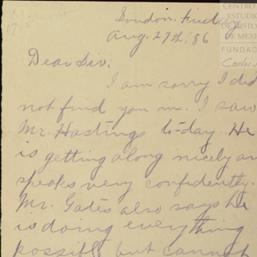 London, Friday
Aug. 27th, '86
CENTRO
ESTUDIOS
HISTORIA
DE MEXICO
FUNDACIÓN
Carlos
Dear Sir:
I am sorry I did
not find you in. I saw
Mr. Hastings to-day. He
is getting along nicely and
speaks very confidently.
Mr. Gates also says he
is doing everything
possible but cannot